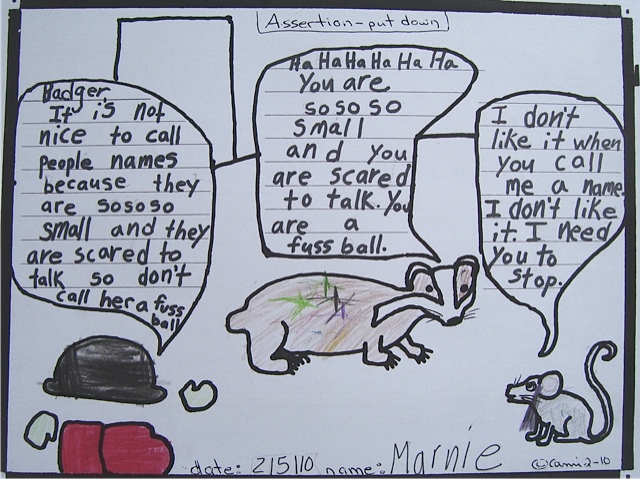 Assertion-put down
Badger
It is not
nice to call
people names
because they
are sososo
small and they
are scared to
talk so don't
call her a fuss
ball
Ha Ha Ha Ha Ha Ha
You are
sososo
small
and you
are scared
to talk. You
are a
fuss ball.
I don't
like it when
you call
me a name.
I don't like
it. I need
you to
stop.
date: 2/5/10 name: Marnie
©Cami 2-10